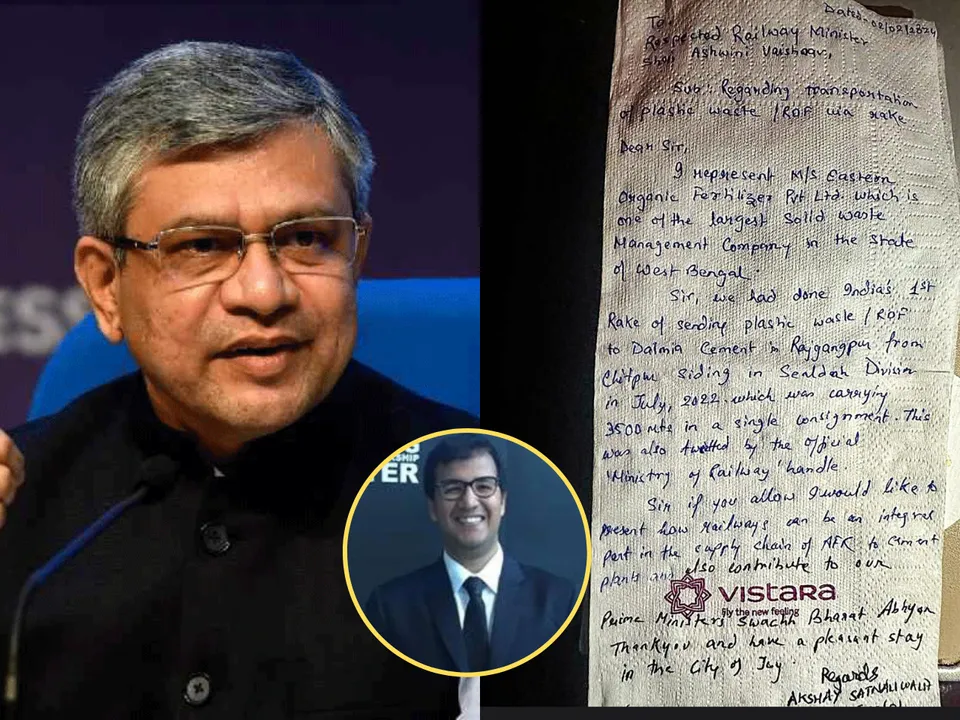 ESS
G
RSHIP
YER
Dated - 02/02/2024
To,
Respected Railway Minister
Shri Ashwini Vaishnav,
Sub: Regarding transportation
of plastic waste / RDF via rake
Dear Sir,
I represent M/s Eastern
Organic Fertilizer Pvt Ltd. which is
one of the largest Solid waste
Management Company in the State
of West Bengal.
Sir, we had done India's 1st
Rake of sending plastic waste / RDF
to Dalmia Cement in Rajgangpur from
Chitpur Siding in Sealdah Division
in July, 2022 which was carrying
3500 mts in a single consignment. This
was also tweeted by the official
'Ministry of Railway' handle
Sir if you allow I would like to
present how railways can be an integral
part in the supply chain of AFR to Cement
plants and also contribute to our
vistara
fly the new feeling
Prime Ministers Swachh Bharat Abhyan
Thankyou and have a pleasant stay
in the City of Joy.
Regards
AKSHAY SATNALIWALA